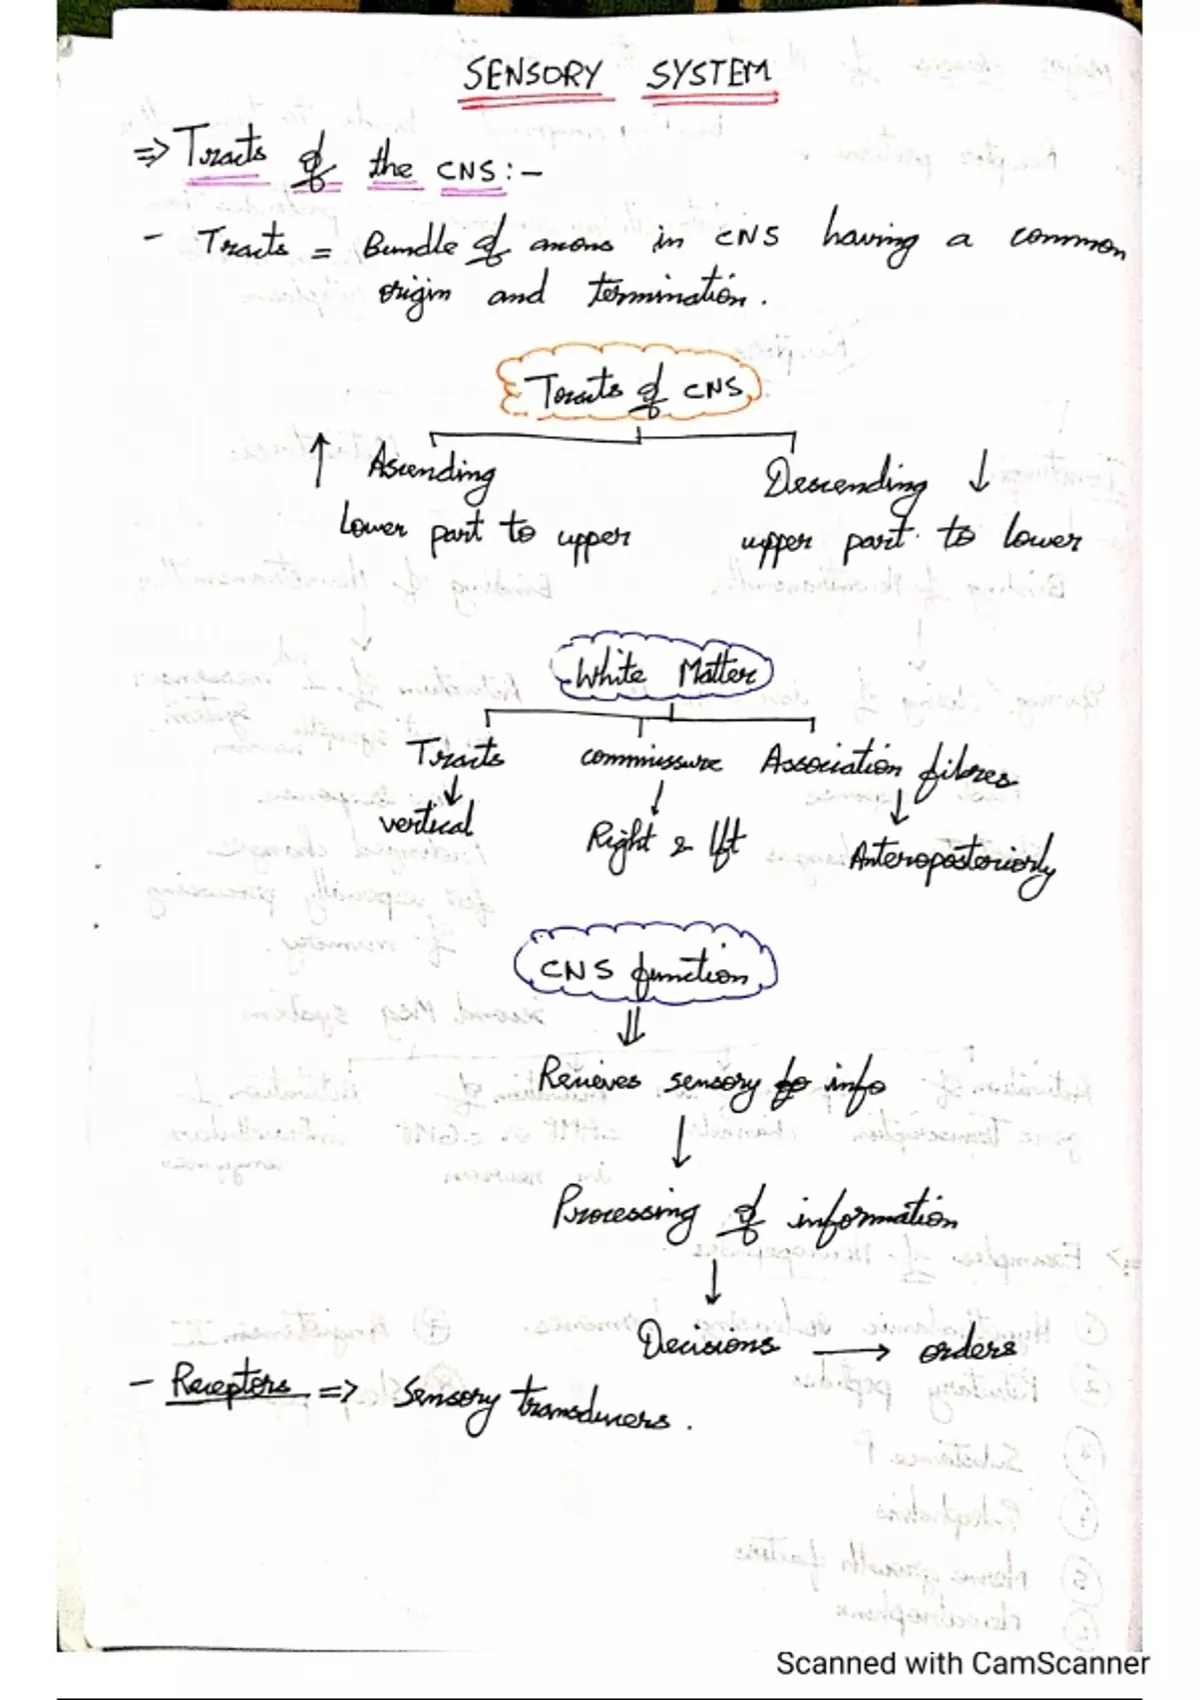 SENSORY SYSTEM
=> Tracts of the CNS :-
- Tracts = Bundle of axons in CNS having a common
origin and termination.
Tracts of CNS
↑ Ascending
Descending ↓
Lower part to upper
upper part to lower
White Matter
Tracts
commissure
Association fibres
↓ ↓ ↓
vertical
Right & lft
Anteroposteriorly
CNS function
⇓
Recieves sensory info
↓
Processing of information
↓
Decisions → orders
- Receptors => Sensory transducers.
Scanned with CamScanner